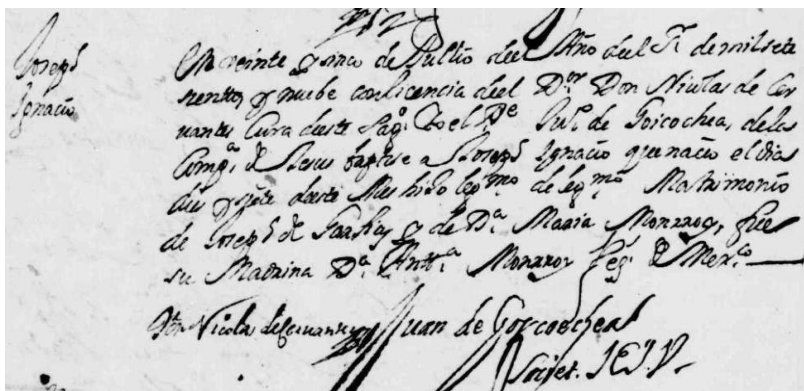 Joseph
Ignacio
En veinte y sinco de Jullio deel Año del Sr. de mil sete
sienttos, y nuebe con licencia deel Dor. Don Nicolas de Cer
uantes Cura deste Sago. Yo el Pe. Jun. de Goicochea, de la
Compa. de Jesus baptise a Joseph Ignacio que nacio el dia
dies y siete deste Mes hixo legmo. de legmo. Matrimonio
de Joseph de Garay y de Da. Maria Monrroy, fue
su Madrina Da. Antta. Monrroy de Mexco.
Dor. Nicolas de Cervantes Juan de Goycoechea
Societ. IESV.